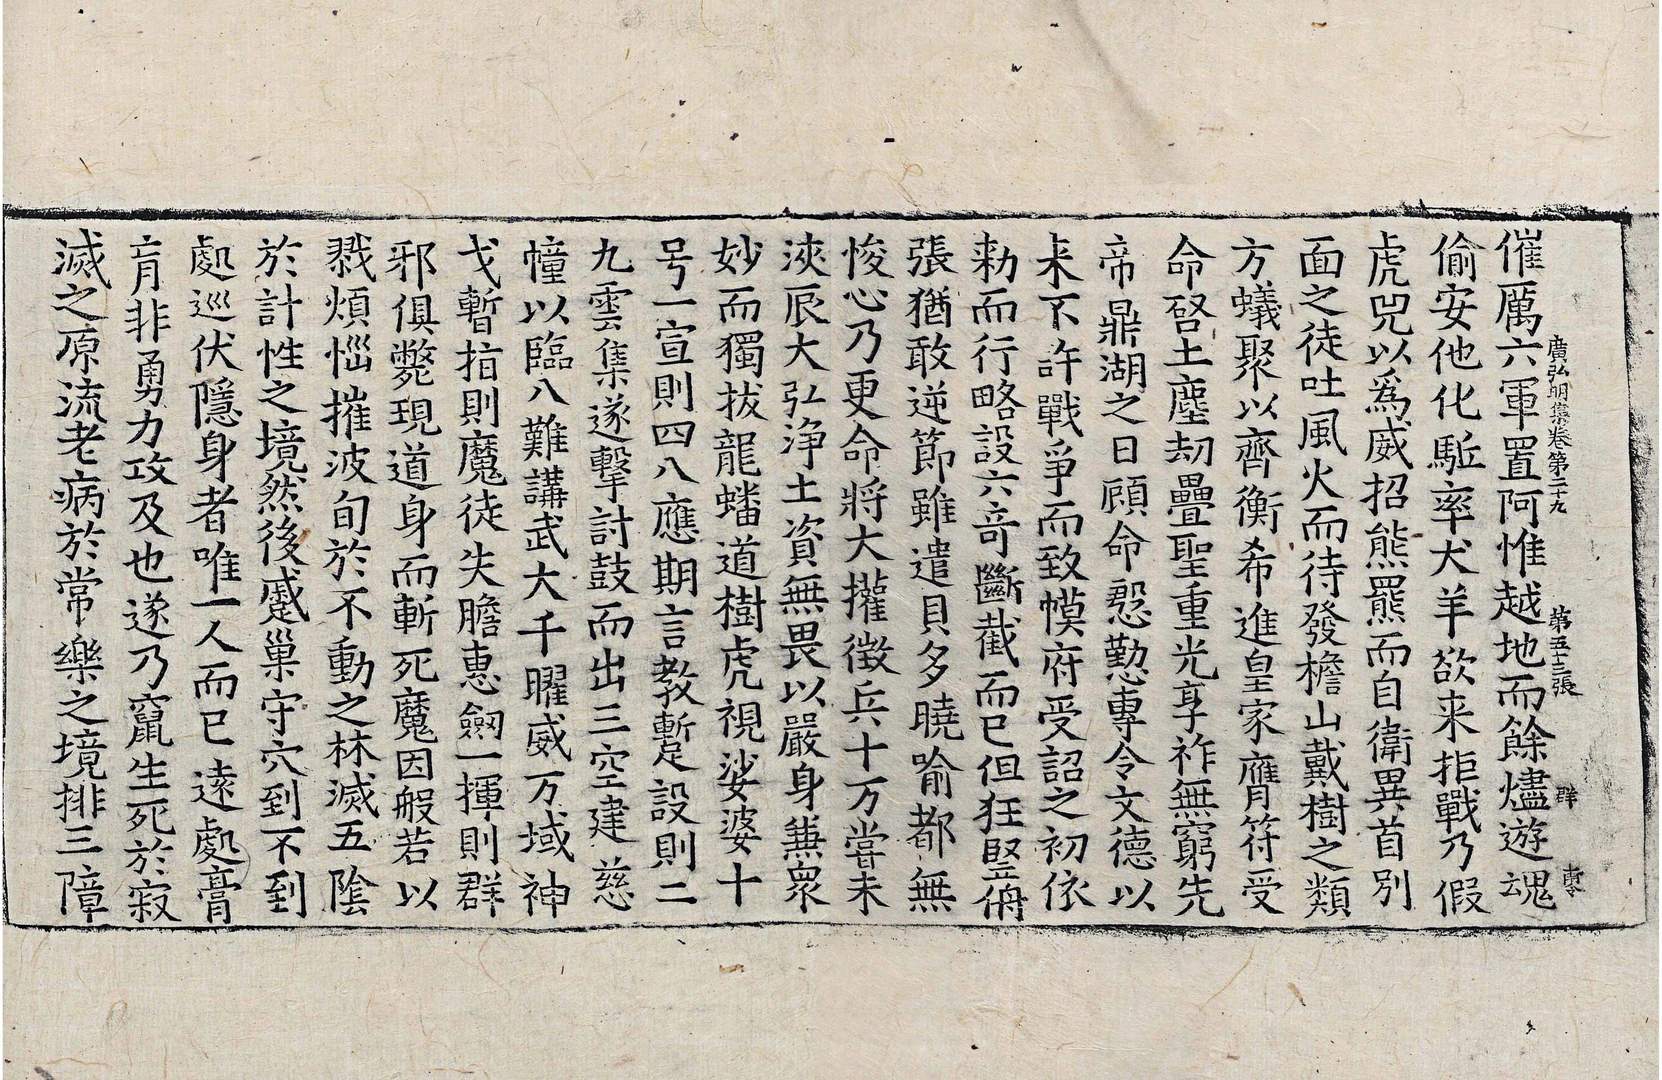 催厲六軍置阿惟越地而餘燼遊魂
廣弘明集卷第二十九 第五十三張 群
偷安他化駈率犬羊欲来拒戰乃假
虎兕以爲威招熊羆而自衛異首別
面之徒吐風火而待發檐山戴樹之類
方蟻聚以齊衡希進皇家膺符受
命啓土塵劫疊聖重光享祚無窮先
帝鼎湖之日顧命慇懃專令文德以
来不許戰爭而致幙府受詔之初依
勑而行略設六竒斷截而已但狂竪侜
張猶敢逆節雖遣貝多曉喻都無
悛心乃更命將大攉徵兵十万嘗未
浹辰大弘淨土資無畏以嚴身兼衆
妙而獨拔龍蟠道樹虎視娑婆十
号一宣則四八應期言教蹔設則二
九雲集遂擊討鼓而出三空建慈
幢以臨八難講武大千曜威万域神
戈暫指則魔徒失膽惠劔一揮則群
邪俱斃現道身而斬死魔因般若以
戮煩惱摧波旬於不動之林滅五陰
於計性之境然後蹙巢守穴到不到
處巡伏隱身者唯一人而已遠處膏
肓非勇力攻及也遂乃竄生死於寂
滅之原流老病於常樂之境排三障